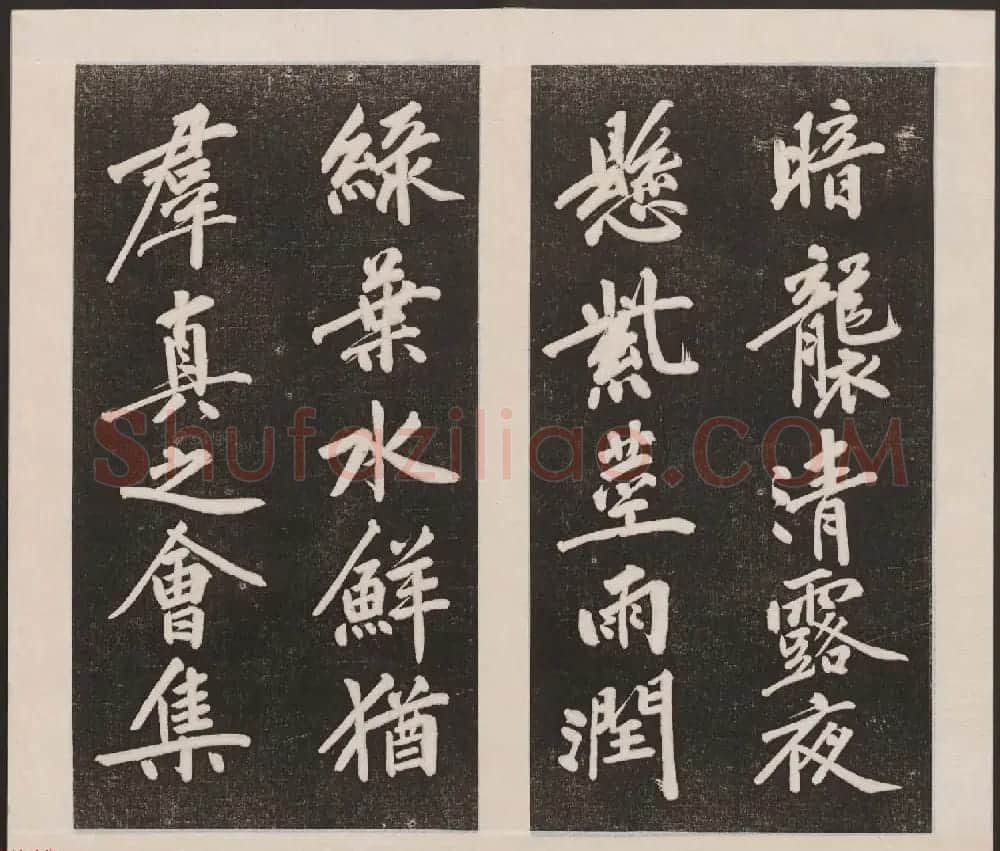 暗襲清露夜
懸紫莖雨潤
綠葉水鮮猶
羣真之會集
Shufaziliao.COM